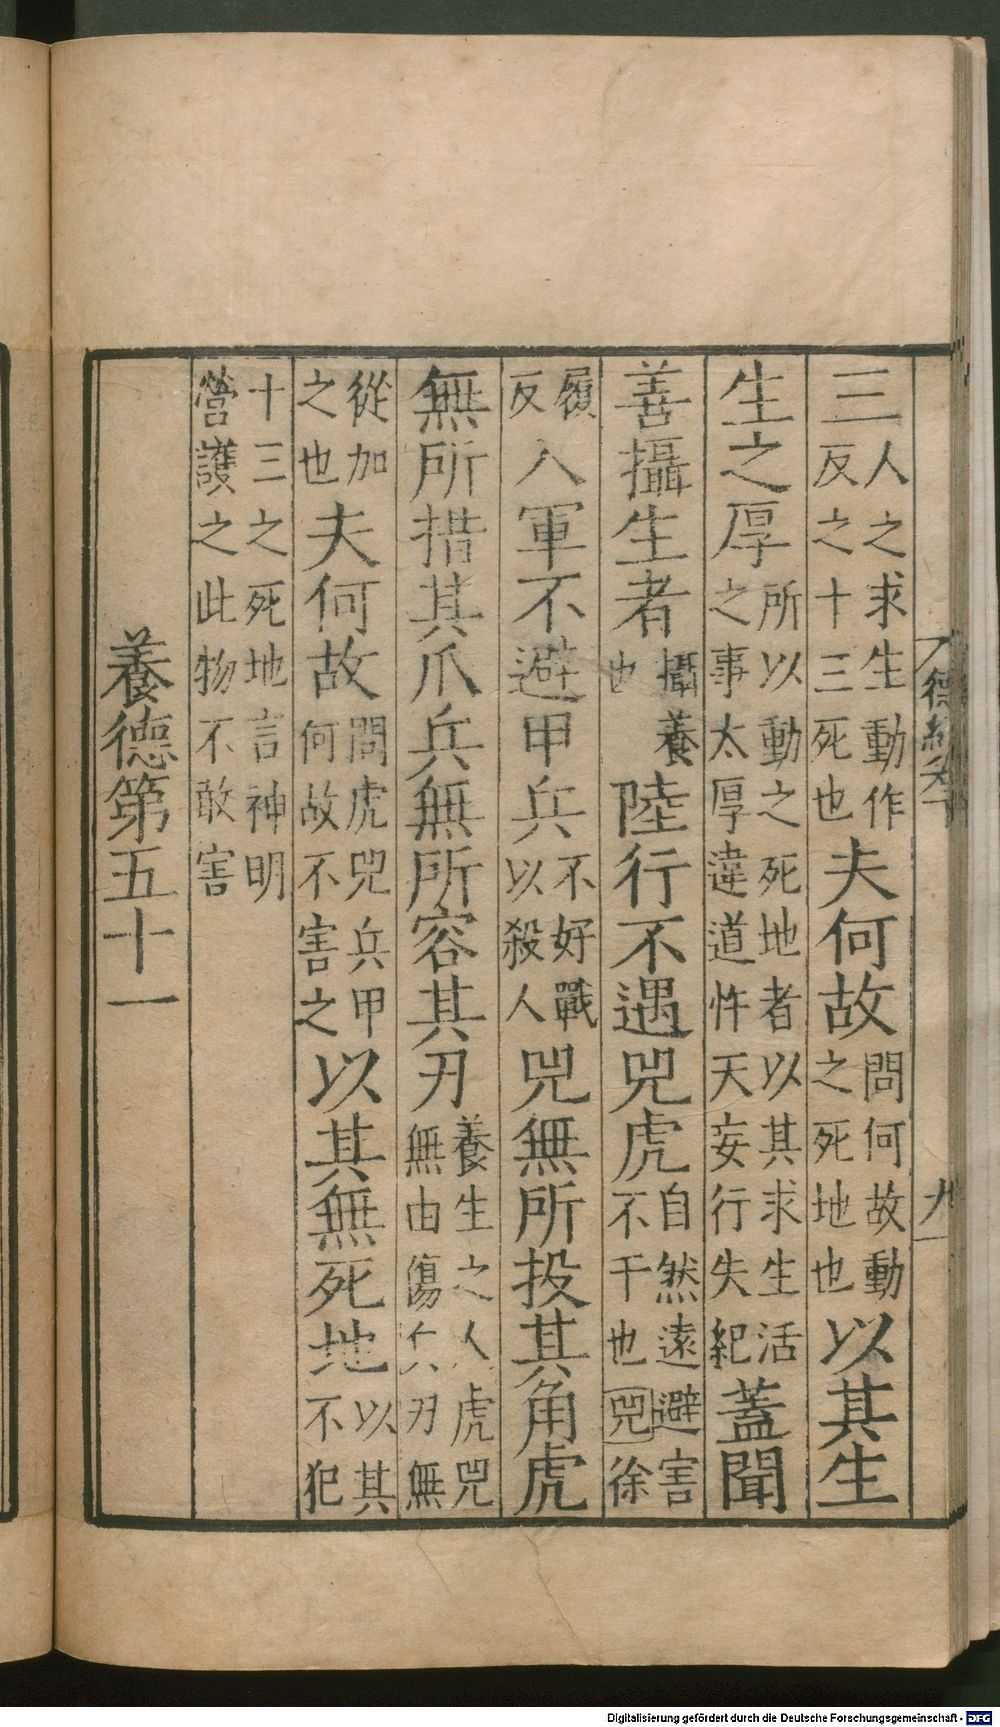 德經 九
三人之求生動作反之十三死也夫何故問何故動之死地也以其生
生之厚所以動之死地者以其求生活之事太厚違道忤天妄行失紀蓋聞
善攝生者攝養也陸行不遇兕虎自然遠避害不干也兕徐
履反入軍不避甲兵不好戰以殺人兕無所投其角虎
無所措其爪兵無所容其刃養生之人虎兕無由傷兵刃無
從加之也夫何故問虎兕兵甲何故不害之以其無死地以其不犯
十三之死地言神明營護之此物不敢害
養德第五十一
Digitalisierung gefördert durch die Deutsche Forschungsgemeinschaft - DFG